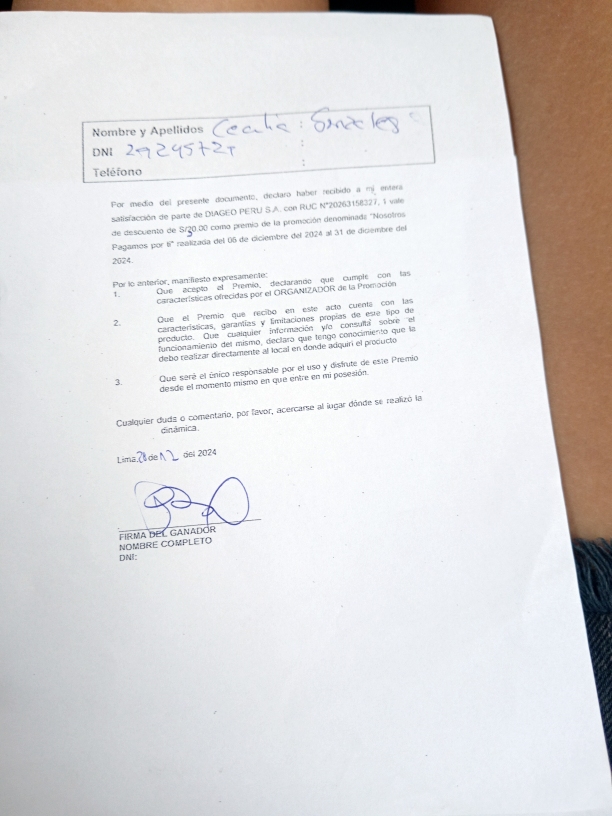 Nombre y Apellidos Cecilia : Gonzales
DNI
Teléfono
Por medio del presente documento, declaro haber recibido a mi entera
satisfacción de parte de DIAGEO PERU S.A. con RUC N°20263158327, 1 vale
de descuento de S/30.00 como premio de la promoción denominada "Nosotros
Pagamos por ti" realizada del 06 de diciembre del 2024 al 31 de diciembre del
2024.
Por lo anterior, manifiesto expresamente:
1. Que acepto el Premio, declarando que cumple con las
características ofrecidas por el ORGANIZADOR de la Promoción
2. Que el Premio que recibo en este acto cuenta con las
características, garantías y limitaciones propias de este tipo de
producto. Que cualquier información y/o consulta sobre el
funcionamiento del mismo, declaro que tengo conocimiento que la
debo realizar directamente al local en donde adquirí el producto
3. Que seré el único responsable por el uso y disfrute de este Premio
desde el momento mismo en que entre en mi posesión.
Cualquier duda o comentario, por favor, acercarse al lugar dónde se realizó la
dinámica.
Lima, 28 de 12 del 2024
FIRMA DEL GANADOR
NOMBRE COMPLETO
DNI: